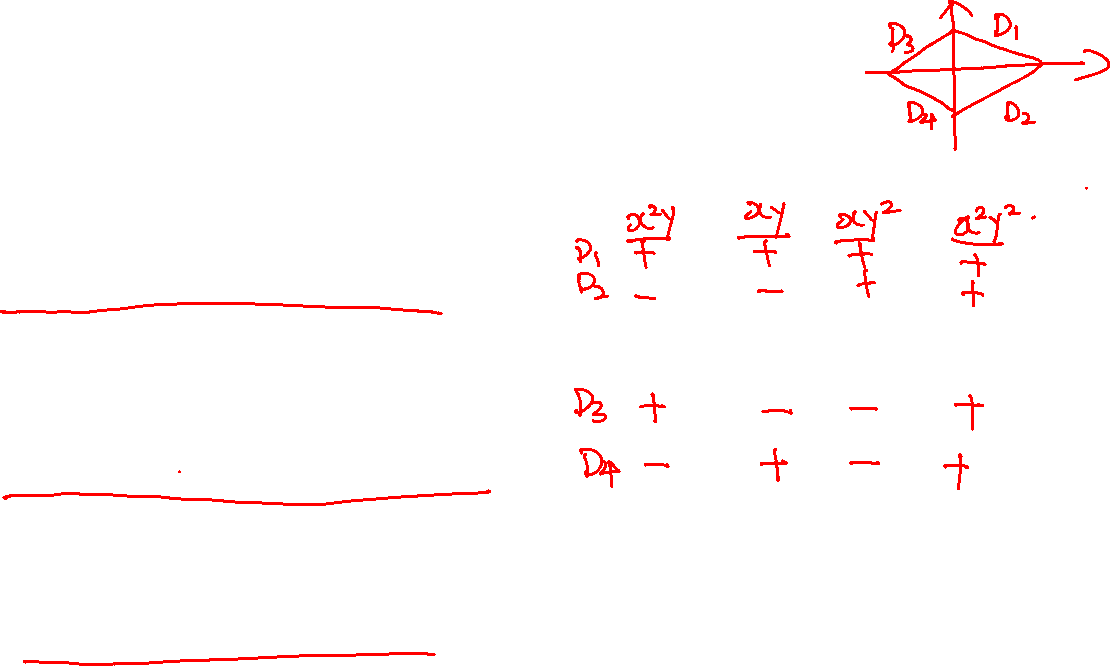 D₃ D₁
D₄ D₂
x²y xy xy² x²y².
D₁ + + + +
D₂ − − + +
D₃ + − − +
D₄ − + − +